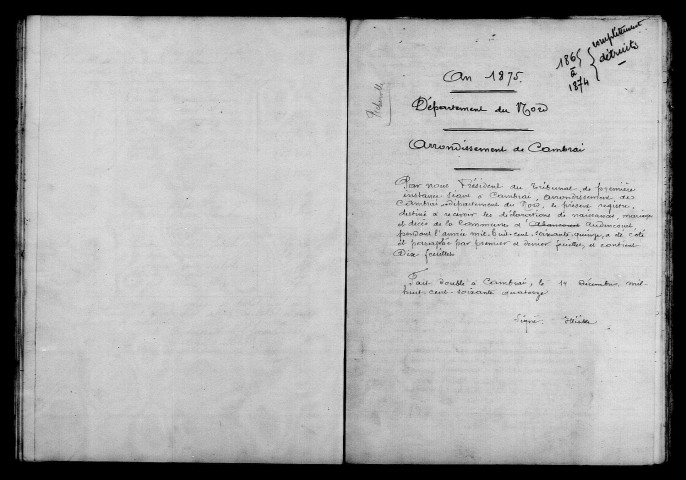 1865 à 1874 } complètement détruits
An 1875.
Département du Nord
Arrondissement de Cambrai
Par nous Président du Tribunal de première
instance séant à Cambrai, arrondissement de
Cambrai, département du Nord, le présent registre,
destiné à recevoir les déclarations de naissances, mariages
et décès de la Commune d'Abancourt Audencourt,
pendant l'année mil-huit-cent-soixante-quinze, a été coté
et paraphé par premier et dernier feuillet, et contient
Dix feuillets
Fait double à Cambrai, le 14 Décembre mil-
huit-cent-soixante quatorze
Signé: